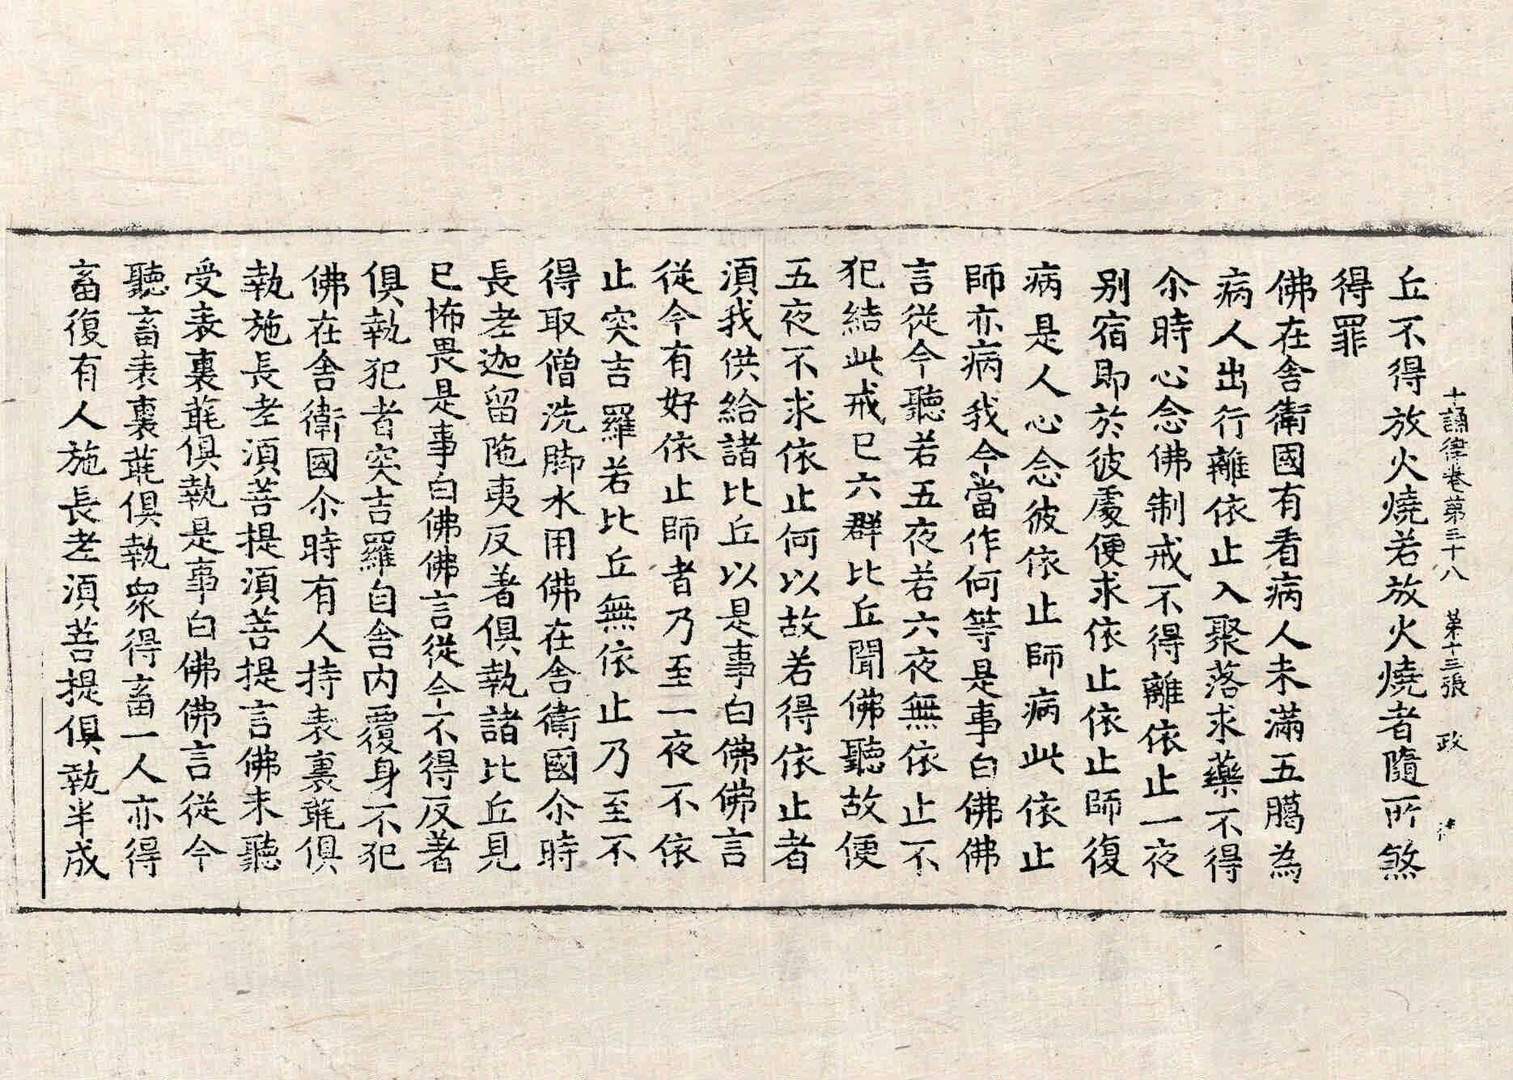 十誦律卷第三十八 第十三張 政
丘不得放火燒若放火燒者隨所煞
得罪
佛在舍衛國有看病人未滿五臈為
病人出行離依止入聚落求藥不得
尒時心念佛制戒不得離依止一夜
别宿即於彼處便求依止依止師復
病是人心念彼依止師病此依止
師亦病我今當作何等是事白佛佛
言從今聽若五夜若六夜無依止不
犯結此戒已六群比丘聞佛聽故便
五夜不求依止何以故若得依止者
湏我供給諸比丘以是事白佛佛言
從今有好依止師者乃至一夜不依
止突吉羅若比丘無依止乃至不
得取僧洗脚水用佛在舍衛國尒時
長老迦留陁夷反著俱執諸比丘見
已怖畏是事白佛佛言從今不得反著
俱執犯者突吉羅自舍内覆身不犯
佛在舍衛國尒時有人持表裏毦俱
執施長老湏菩提湏菩提言佛未聽
受表裏毦俱執是事白佛佛言從今
聽畜表裏毦俱執衆得畜一人亦得
畜復有人施長老湏菩提俱執半成